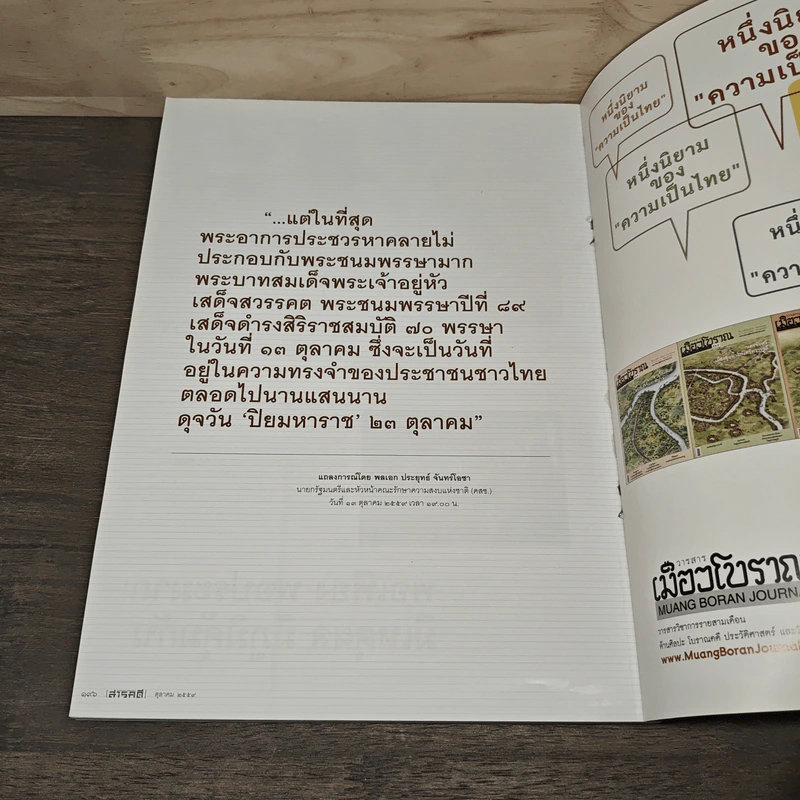 “...แต่ในที่สุด
พระอาการประชวรหาคลายไม่
ประกอบกับพระชนมพรรษามาก
พระบาทสมเด็จพระเจ้าอยู่หัว
เสด็จสวรรคต พระชนมพรรษาปีที่ ๘๙
เสด็จดำรงสิริราชสมบัติ ๗๐ พรรษา
ในวันที่ ๑๓ ตุลาคม ซึ่งจะเป็นวันที่
อยู่ในความทรงจำของประชาชนชาวไทย
ตลอดไปนานแสนนาน
ดุจวัน ‘ปิยมหาราช’ ๒๓ ตุลาคม”
แถลงการณ์โดย พลเอก ประยุทธ์ จันทร์โอชา
นายกรัฐมนตรีและหัวหน้าคณะรักษาความสงบแห่งชาติ (คสช.)
วันที่ ๑๓ ตุลาคม ๒๕๕๙ เวลา ๑๙.๐๐ น.
๑๙๖ สารคดี ตุลาคม ๒๕๕๙
หนึ่งนิ
ขอ
"ความเป็
หนึ่งนิยาม
ของ
"ความเป็นไทย"
หนึ่งนิยาม
ของ
"ความเป็นไทย"
หนึ่
"ควา
เมืองโบราณ
เมืองโบราณ
วารสาร
เมืองโบราณ
MUANG BORAN JOURNA
วารสารวิชาการรายสามเดือน
ด้านศิลปะ โบราณคดี ประวัติศาสตร์ และ
www.MuangBoranJournal